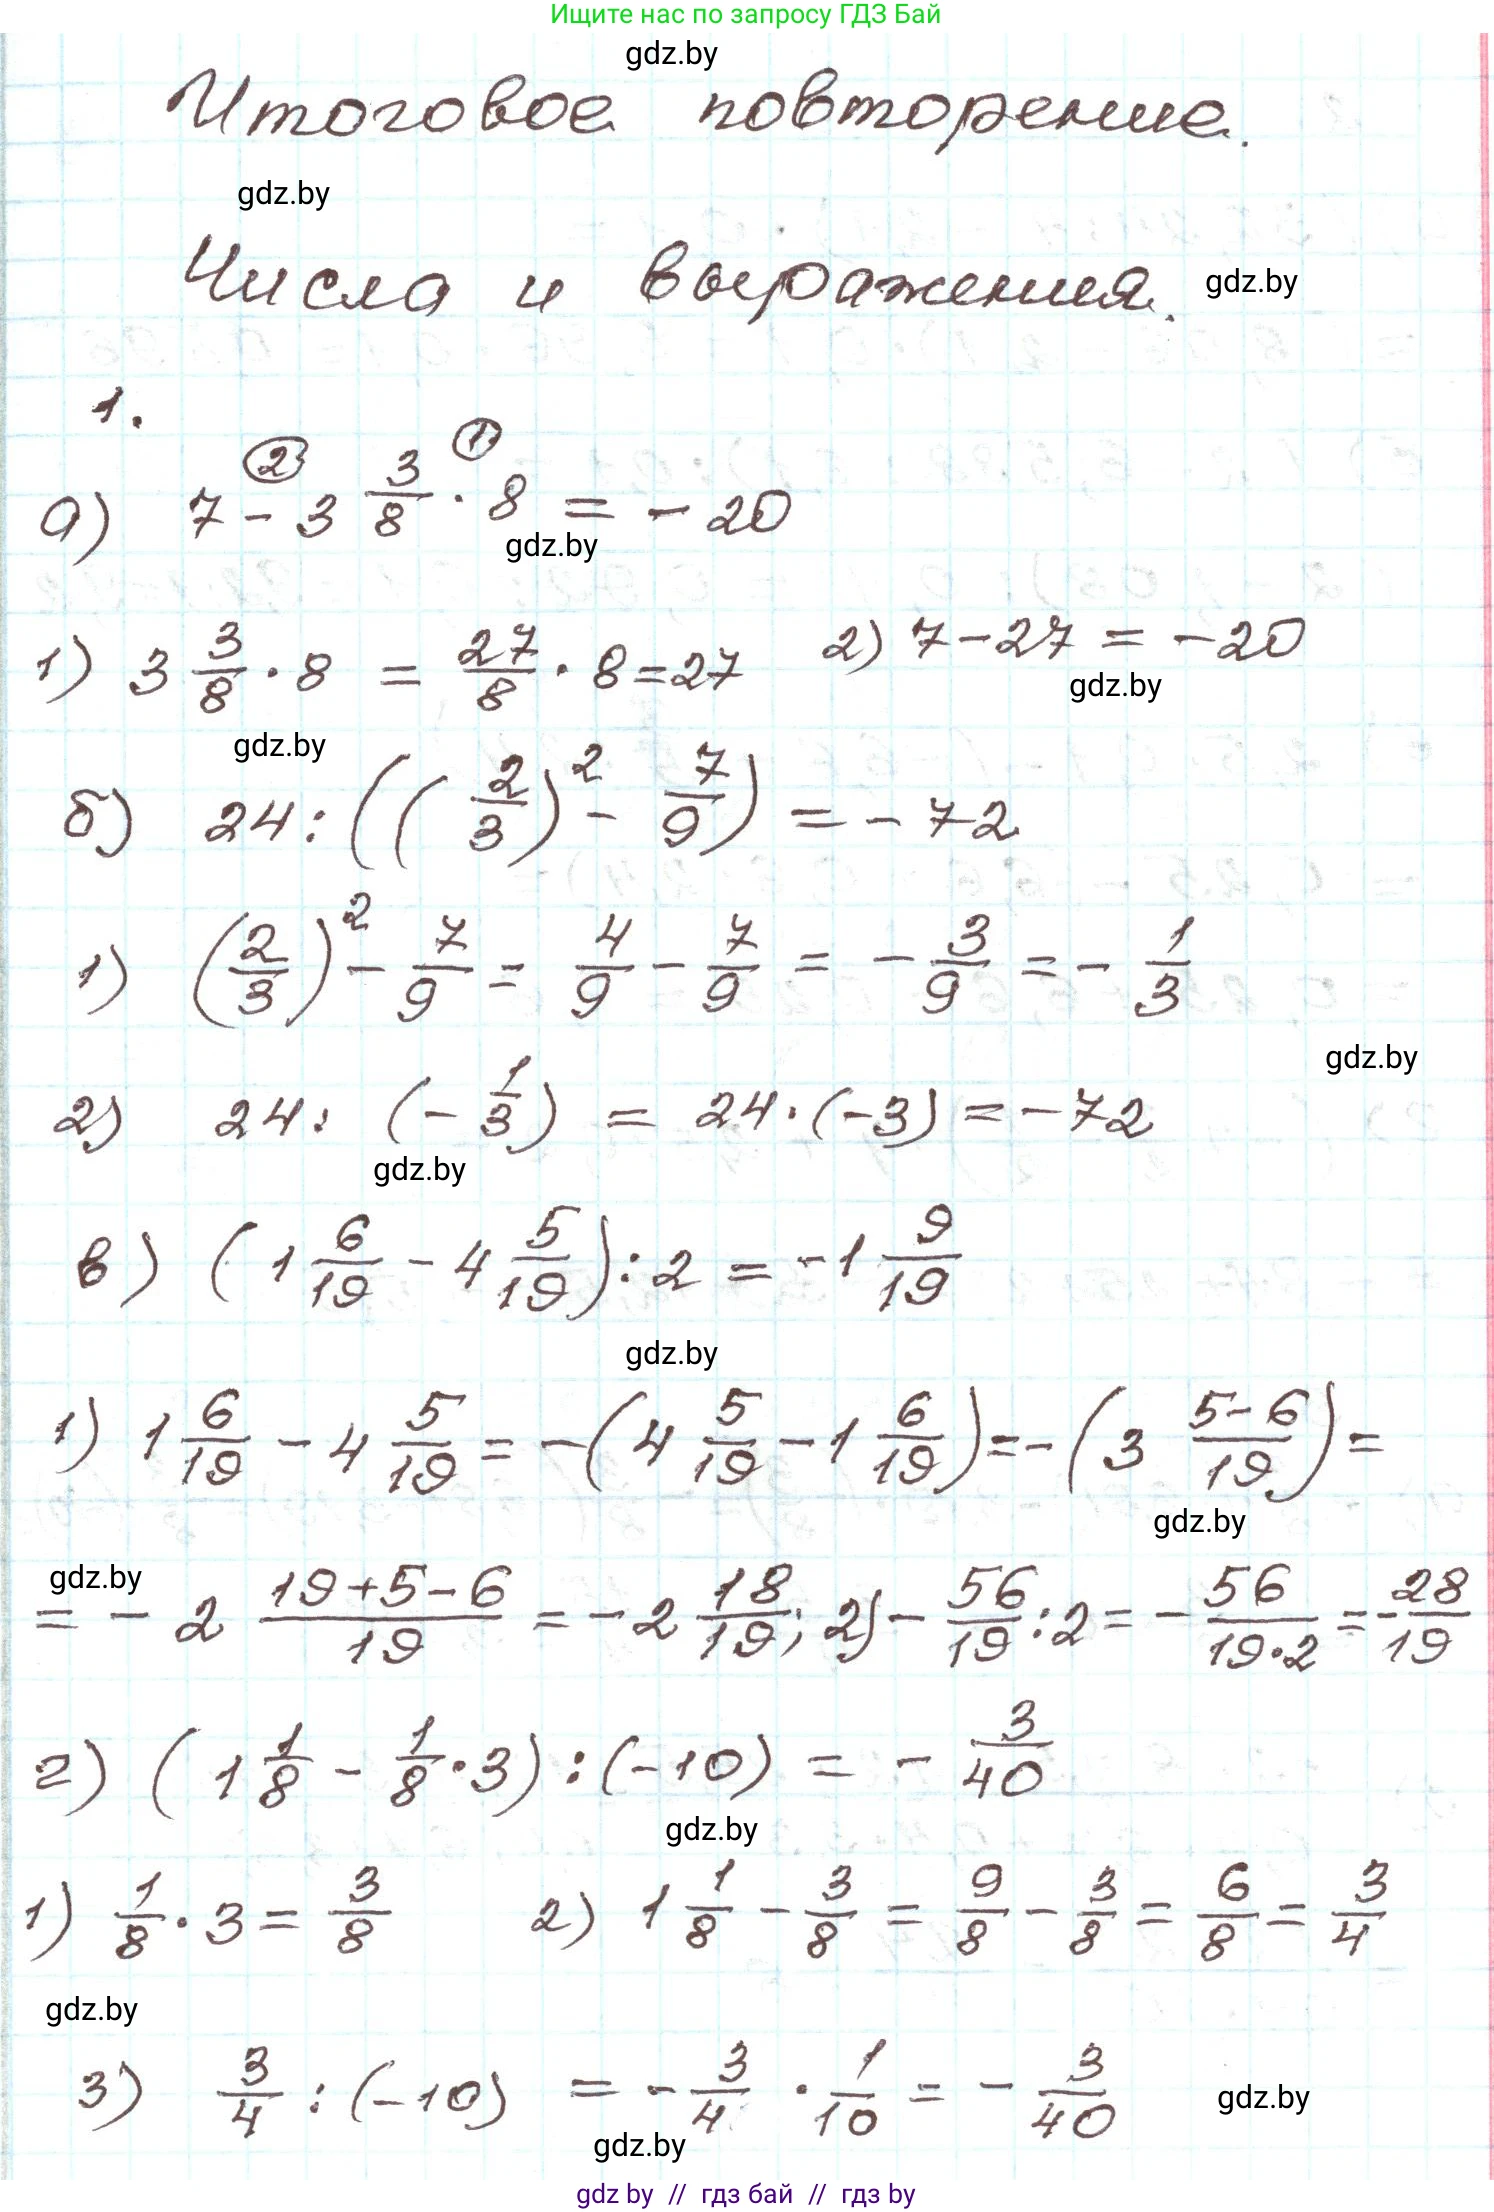 Ищите нас по запросу ГДЗ Бай
gdz.by
Итоговое повторение.
gdz.by
Числа и выражения. gdz.by
1.
② ①
а) 7 - 3 3/8 · 8 = - 20
gdz.by
1) 3 3/8 · 8 = 27/8 · 8 = 27 2) 7 - 27 = - 20
gdz.by
gdz.by
б) 24 : ((2/3)² - 7/9) = - 72
1) (2/3)² - 7/9 = 4/9 - 7/9 = - 3/9 = - 1/3
gdz.by
2) 24 : (- 1/3) = 24 · (-3) = - 72
gdz.by
в) (1 6/19 - 4 5/19) : 2 = - 1 9/19
gdz.by
1) 1 6/19 - 4 5/19 = - (4 5/19 - 1 6/19) = - (3 5-6/19) =
gdz.by
gdz.by
= - 2 19+5-6/19 = - 2 18/19; 2) - 56/19 : 2 = - 56/19·2 = - 28/19
г) (1 1/8 - 1/8 · 3) : (-10) = - 3/40
gdz.by
1) 1/8 · 3 = 3/8 2) 1 1/8 - 3/8 = 9/8 - 3/8 = 6/8 = 3/4
gdz.by
3) 3/4 : (-10) = - 3/4 · 1/10 = - 3/40 gdz.by
gdz.by
gdz by // гдз бай // гдз by